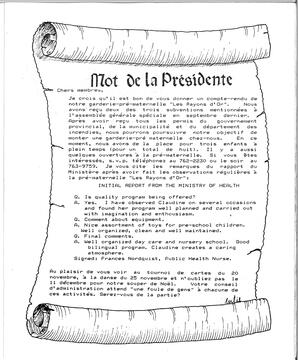 Mot de la Présidente
Chers membres,
Je crois qu'il est bon de vous donner un compte-rendu de
notre garderie-pré-maternelle "Les Rayons d'Or". Nous
avons reçu deux des trois subventions mentionnées à
l'assemblée générale spéciale en septembre dernier.
Après avoir reçu tous les permis du gouvernement
provincial, de la municipalité et du département des
incendies, nous pourrons poursuivre notre objectif de
monter une garderie-pré maternelle chez-nous. En ce
moment, nous avons de la place pour trois enfants à
plein temps (pour un total de huit). Il y a aussi
quelques ouvertures à la pré-maternelle. Si vous êtes
intéressés, s.v.p. téléphones au 762-2230 ou le soir au
763-9759. Je vous cite ici les remarques du rapport du
Ministère après avoir fait des observations régulières à
la pré-maternelle "Les Rayons d'Or":
INITIAL REPORT FROM THE MINISTRY OF HEALTH
Q. Is quality program being offered?
A. Yes. I have observed Claudine on several occasions
and found her program well planned and carried out
with imagination and enthusiasm.
Q. Comment about equipment.
A. Nice assortment of toys for pre-school children.
Well organized, clean and well maintained.
Q. Final comments.
A. Well organized day care and nursery school. Good
bilingual program. Claudine creates a caring
atmosphere.
Signed: Frances Nordquist, Public Health Nurse.
Au plaisir de vous voir au tournoi de cartes du 20
novembre, à la danse du 25 novembre et n'oubliez pas le
11 décembre pour notre souper de Noël. Votre conseil
d'administration attend "une foule de gens" à chacune de
ces activités. Serez-vous de la partie?